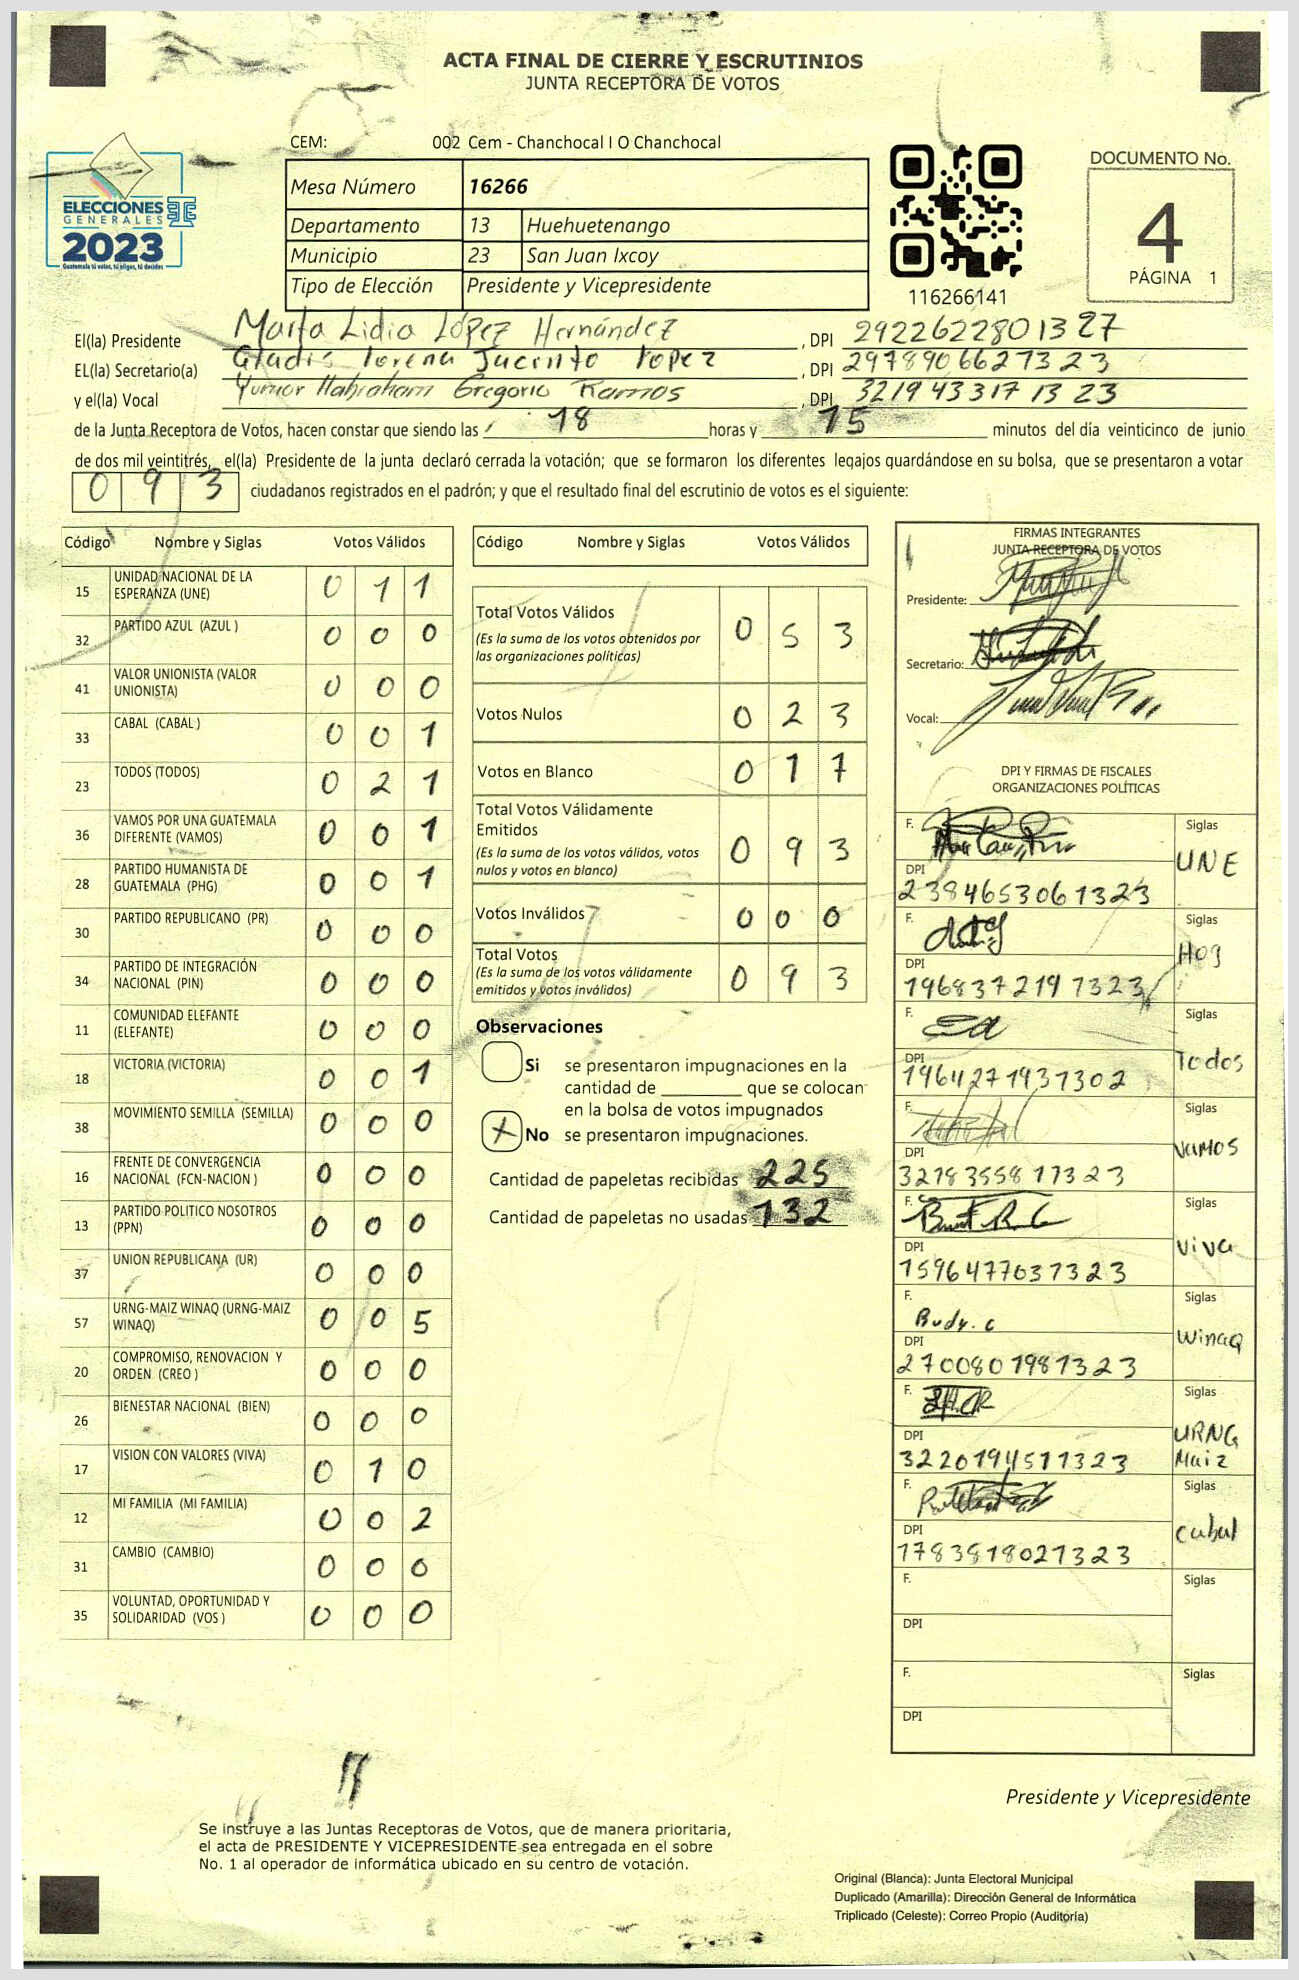 ACTA FINAL DE CIERRE Y ESCRUTINIOS
JUNTA RECEPTORA DE VOTOS
CEM: 002 Cem - Chanchocal I O Chanchocal
ELECCIONES
GENERALES
2023
Guatemala tú votas, tú eliges, tú decides
TE
Mesa Número 16266
Departamento 13 Huehuetenango
Municipio 23 San Juan Ixcoy
Tipo de Elección Presidente y Vicepresidente
116266141
DOCUMENTO No.
4
PÁGINA 1
El(la) Presidente Marta Lidia López Hernández , DPI 2922622801327
EL(la) Secretario(a) Gladis Lorena Jacinto Lopez , DPI 2978906627323
y el(la) Vocal Yunior Habraham Gregorio Ramos , DPI 3219433171323
de la Junta Receptora de Votos, hacen constar que siendo las 18 horas y 15 minutos del día veinticinco de junio
de dos mil veintitrés, el(la) Presidente de la junta declaró cerrada la votación; que se formaron los diferentes legajos guardándose en su bolsa, que se presentaron a votar
0 9 3 ciudadanos registrados en el padrón; y que el resultado final del escrutinio de votos es el siguiente:
Código Nombre y Siglas Votos Válidos
15 UNIDAD NACIONAL DE LA ESPERANZA (UNE) 0 1 1
32 PARTIDO AZUL (AZUL ) 0 0 0
41 VALOR UNIONISTA (VALOR UNIONISTA) 0 0 0
33 CABAL (CABAL ) 0 0 1
23 TODOS (TODOS) 0 2 1
36 VAMOS POR UNA GUATEMALA DIFERENTE (VAMOS) 0 0 1
28 PARTIDO HUMANISTA DE GUATEMALA (PHG) 0 0 1
30 PARTIDO REPUBLICANO (PR) 0 0 0
34 PARTIDO DE INTEGRACIÓN NACIONAL (PIN) 0 0 0
11 COMUNIDAD ELEFANTE (ELEFANTE) 0 0 0
18 VICTORIA (VICTORIA) 0 0 1
38 MOVIMIENTO SEMILLA (SEMILLA) 0 0 0
16 FRENTE DE CONVERGENCIA NACIONAL (FCN-NACION ) 0 0 0
13 PARTIDO POLITICO NOSOTROS (PPN) 0 0 0
37 UNION REPUBLICANA (UR) 0 0 0
57 URNG-MAIZ WINAQ (URNG-MAIZ WINAQ) 0 0 5
20 COMPROMISO, RENOVACION Y ORDEN (CREO ) 0 0 0
26 BIENESTAR NACIONAL (BIEN) 0 0 0
17 VISION CON VALORES (VIVA) 0 1 0
12 MI FAMILIA (MI FAMILIA) 0 0 2
31 CAMBIO (CAMBIO) 0 0 0
35 VOLUNTAD, OPORTUNIDAD Y SOLIDARIDAD (VOS ) 0 0 0
Código Nombre y Siglas Votos Válidos
Total Votos Válidos 0 5 3
(Es la suma de los votos obtenidos por
las organizaciones políticas)
Votos Nulos 0 2 3
Votos en Blanco 0 1 7
Total Votos Válidamente
Emitidos 0 9 3
(Es la suma de los votos válidos, votos
nulos y votos en blanco)
Votos Inválidos 0 0 0
Total Votos 0 9 3
(Es la suma de los votos válidamente
emitidos y votos inválidos)
Observaciones
Si se presentaron impugnaciones en la
cantidad de ________ que se colocan
en la bolsa de votos impugnados
X No se presentaron impugnaciones.
Cantidad de papeletas recibidas 225
Cantidad de papeletas no usadas 132
FIRMAS INTEGRANTES
JUNTA RECEPTORA DE VOTOS
Presidente:
Secretario:
Vocal:
DPI Y FIRMAS DE FISCALES
ORGANIZACIONES POLÍTICAS
F. Siglas
UNE
DPI
2384653061323
F. Siglas
Hog
DPI
1968372191323
F. Siglas
Todos
DPI
1964271931302
F. Siglas
VAMOS
DPI
3218355811323
F. Siglas
viva
DPI
1596477031323
F. Budy. c Siglas
WinaQ
DPI
2700801981323
F. Siglas
URNG
Maiz
DPI
3220194511323
F. Siglas
Cabal
DPI
1783818021323
F. Siglas
DPI
F. Siglas
DPI
Presidente y Vicepresidente
Se instruye a las Juntas Receptoras de Votos, que de manera prioritaria,
el acta de PRESIDENTE Y VICEPRESIDENTE sea entregada en el sobre
No. 1 al operador de informática ubicado en su centro de votación.
Original (Blanca): Junta Electoral Municipal
Duplicado (Amarilla): Dirección General de Informática
Triplicado (Celeste): Correo Propio (Auditoría)